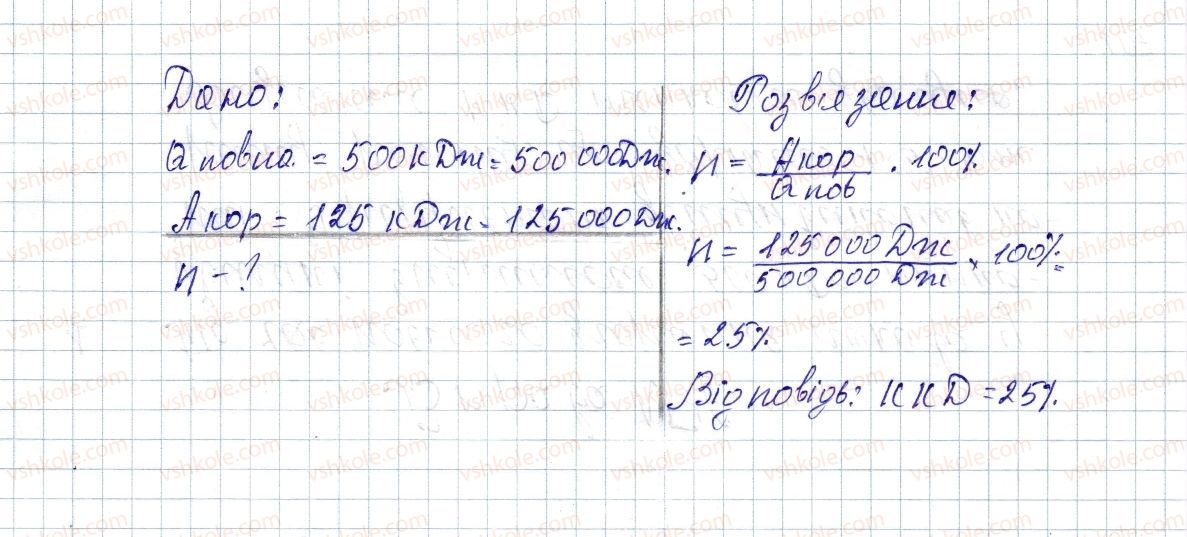 Дано:
Q повна = 500 кДж = 500 000 Дж.
A кор = 125 кДж = 125 000 Дж.
η - ?
Розв'язання:
η = A кор / Q пов · 100%
η = 125 000 Дж / 500 000 Дж · 100% =
= 25%
Відповідь: ККД = 25%.